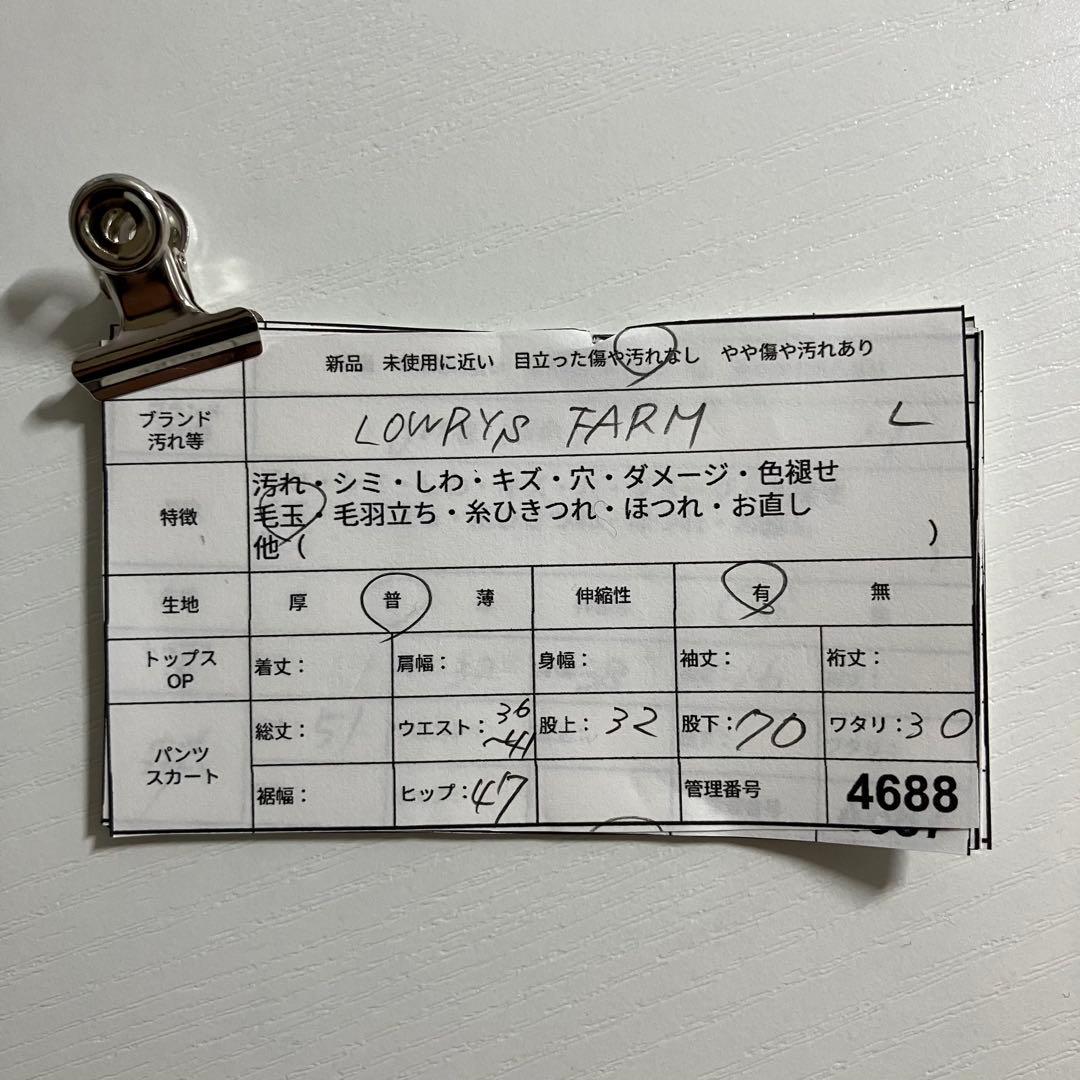 新品 未使用に近い 目立った傷や汚れなし やや傷や汚れあり
ブランド
汚れ等
LOWRYS FARM L
特徴
汚れ・シミ・しわ・キズ・穴・ダメージ・色褪せ
毛玉・毛羽立ち・糸ひきつれ・ほつれ・お直し
他 ( )
生地 厚 普 薄 伸縮性 有 無
トップス
OP
着丈： 肩幅： 身幅： 袖丈： 裄丈：
パンツ
スカート
総丈： ウエスト：36
~41
股上：32 股下：70 ワタリ：30
裾幅： ヒップ：47 管理番号 4688